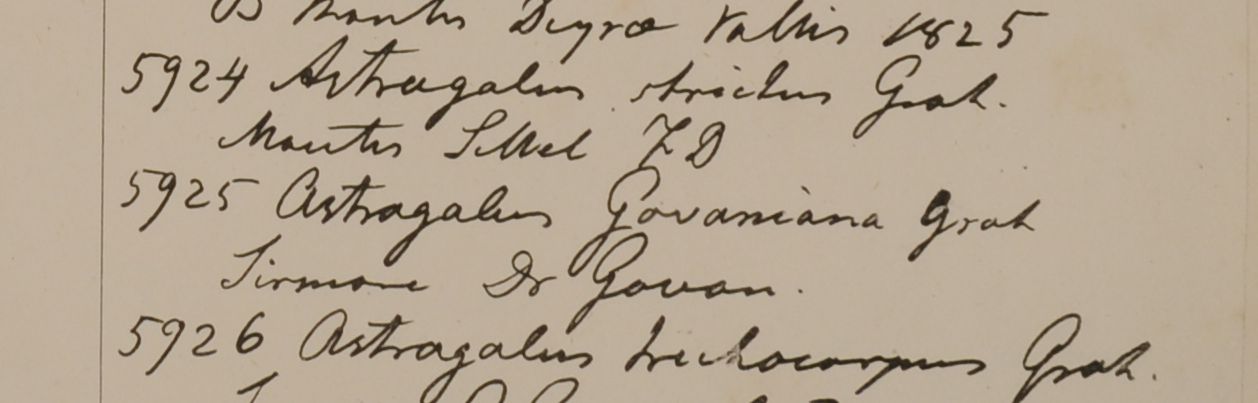 B Montes Deyrae Vallis 1825
5924 Astragalus strictus Grah.
Montes Sillet FD
5925 Astragalus Govaniana Grah
Sirmore Dr Govan.
5926 Astragalus trichocarpus Grah.